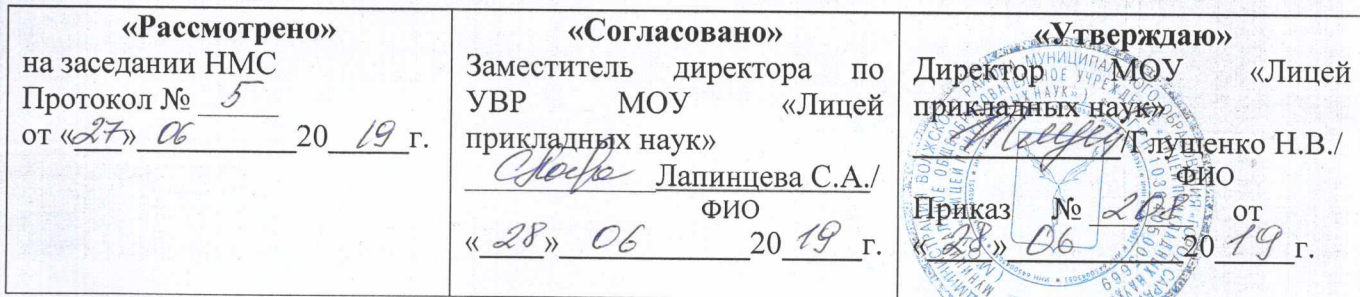 «Рассмотрено»
на заседании НМС
Протокол № 5
от «27» 06 20 19 г.
«Согласовано»
Заместитель директора по
УВР МОУ «Лицей
прикладных наук»
Лапинцева С.А./
ФИО
« 28» 06 20 19 г.
«Утверждаю»
Директор МОУ «Лицей
прикладных наук»
/Глущенко Н.В./
ФИО
Приказ № 208 от
«28» 06 20 19 г.